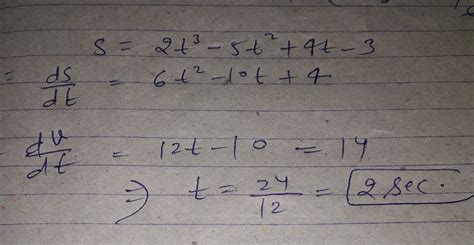 S = 2t³ - 5t² + 4t - 3
= ds/dt = 6t² - 10t + 4
dv/dt = 12t - 10 = 14
⇒ t = 24/12 = 2 sec.